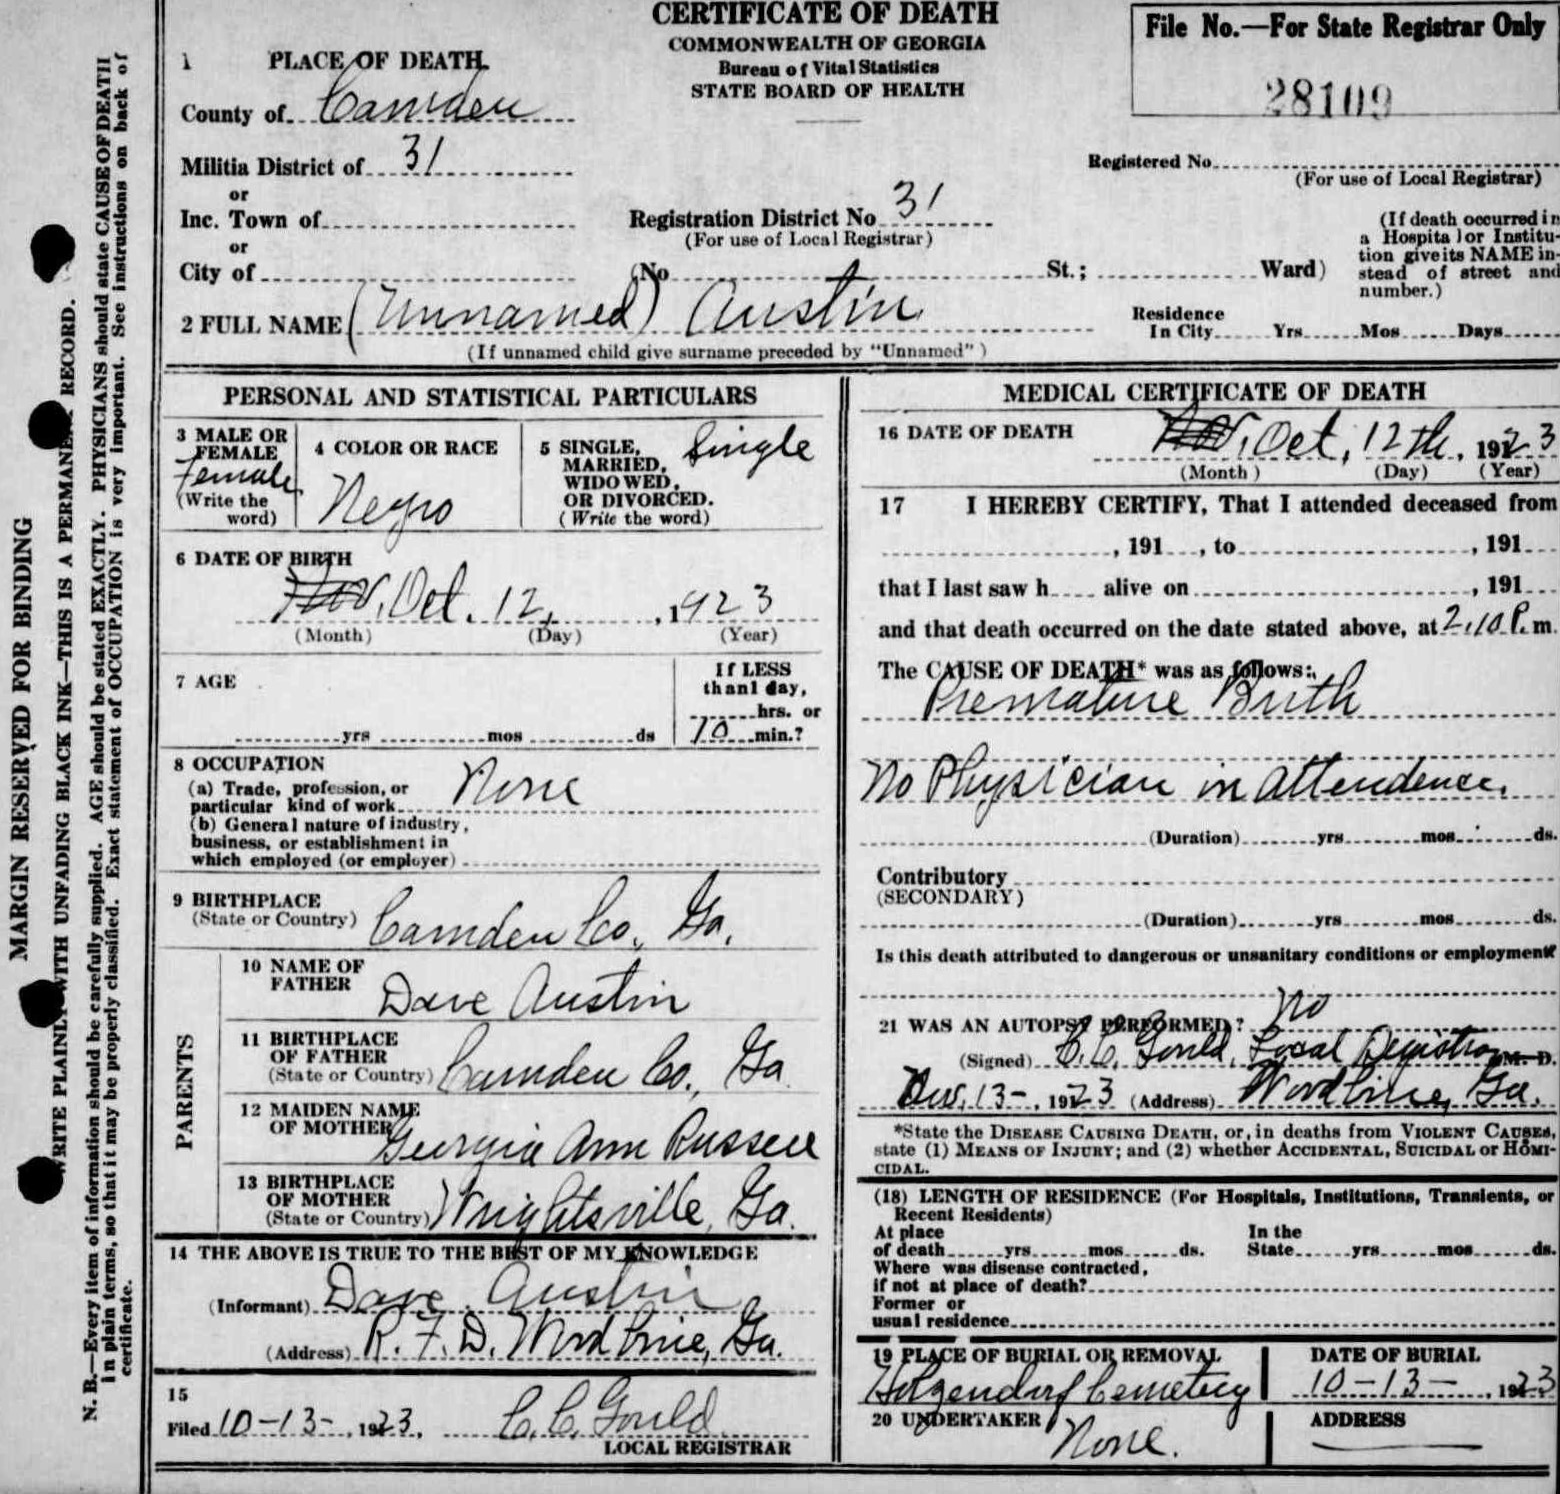 CERTIFICATE OF DEATH
COMMONWEALTH OF GEORGIA
Bureau of Vital Statistics
STATE BOARD OF HEALTH
File No.—For State Registrar Only
28109
1 PLACE OF DEATH
County of Camden
Militia District of 31
or
Inc. Town of
or
City of
Registered No
(For use of Local Registrar)
Registration District No 31
(For use of Local Registrar)
(No St.; Ward)
(If death occurred in
a Hospital or Institu-
tion give its NAME in-
stead of street and
number.)
2 FULL NAME (Unnamed) Austin
(If unnamed child give surname preceded by "Unnamed")
Residence
In City Yrs Mos Days
PERSONAL AND STATISTICAL PARTICULARS
3 MALE OR
FEMALE
Female
(Write the
word)
4 COLOR OR RACE
Negro
5 SINGLE,
MARRIED,
WIDOWED,
OR DIVORCED.
(Write the word)
Single
6 DATE OF BIRTH
Nov. Oct. 12, , 1923
(Month) (Day) (Year)
7 AGE
yrs mos ds
If LESS
than 1 day,
hrs. or
10 min.?
8 OCCUPATION
(a) Trade, profession, or
particular kind of work None
(b) General nature of industry,
business, or establishment in
which employed (or employer)
9 BIRTHPLACE
(State or Country) Camden Co., Ga.
PARENTS
10 NAME OF
FATHER
Dave Austin
11 BIRTHPLACE
OF FATHER
(State or Country) Camden Co., Ga.
12 MAIDEN NAME
OF MOTHER
Georgia Ann Russell
13 BIRTHPLACE
OF MOTHER
(State or Country) Wrightsville, Ga.
14 THE ABOVE IS TRUE TO THE BEST OF MY KNOWLEDGE
(Informant) Dave Austin
(Address) R. F. D. Woodbine, Ga.
15
Filed 10-13-, 1923, C. C. Gould
LOCAL REGISTRAR
MEDICAL CERTIFICATE OF DEATH
16 DATE OF DEATH
Nov. Oct. 12th, 1923
(Month) (Day) (Year)
17 I HEREBY CERTIFY, That I attended deceased from
, 191 , to , 191
that I last saw h alive on , 191
and that death occurred on the date stated above, at 2.10 P. m.
The CAUSE OF DEATH* was as follows:
Premature Birth
No Physician in attendence.
(Duration) yrs mos ds.
Contributory
(SECONDARY)
(Duration) yrs mos ds.
Is this death attributed to dangerous or unsanitary conditions or employment?
21 WAS AN AUTOPSY PERFORMED? No
(Signed) C. C. Gould, Local Registrar M. D.
13-, 1923 (Address) Woodbine, Ga.
*State the DISEASE CAUSING DEATH, or, in deaths from VIOLENT CAUSES,
state (1) MEANS OF INJURY; and (2) whether ACCIDENTAL, SUICIDAL or HOMI-
CIDAL.
(18) LENGTH OF RESIDENCE (For Hospitals, Institutions, Transients, or
Recent Residents)
At place
of death yrs mos ds.
In the
State yrs mos ds.
Where was disease contracted,
if not at place of death?
Former or
usual residence
19 PLACE OF BURIAL OR REMOVAL
Holzendorf Cemetery
DATE OF BURIAL
10-13-, 1923
20 UNDERTAKER
None.
ADDRESS
MARGIN RESERVED FOR BINDING
WRITE PLAINLY WITH UNFADING BLACK INK—THIS IS A PERMANENT RECORD.
N. B.—Every item of information should be carefully supplied. AGE should be stated EXACTLY. PHYSICIANS should state CAUSE OF DEATH
in plain terms, so that it may be properly classified. Exact statement of OCCUPATION is very important. See instructions on back of
certificate.